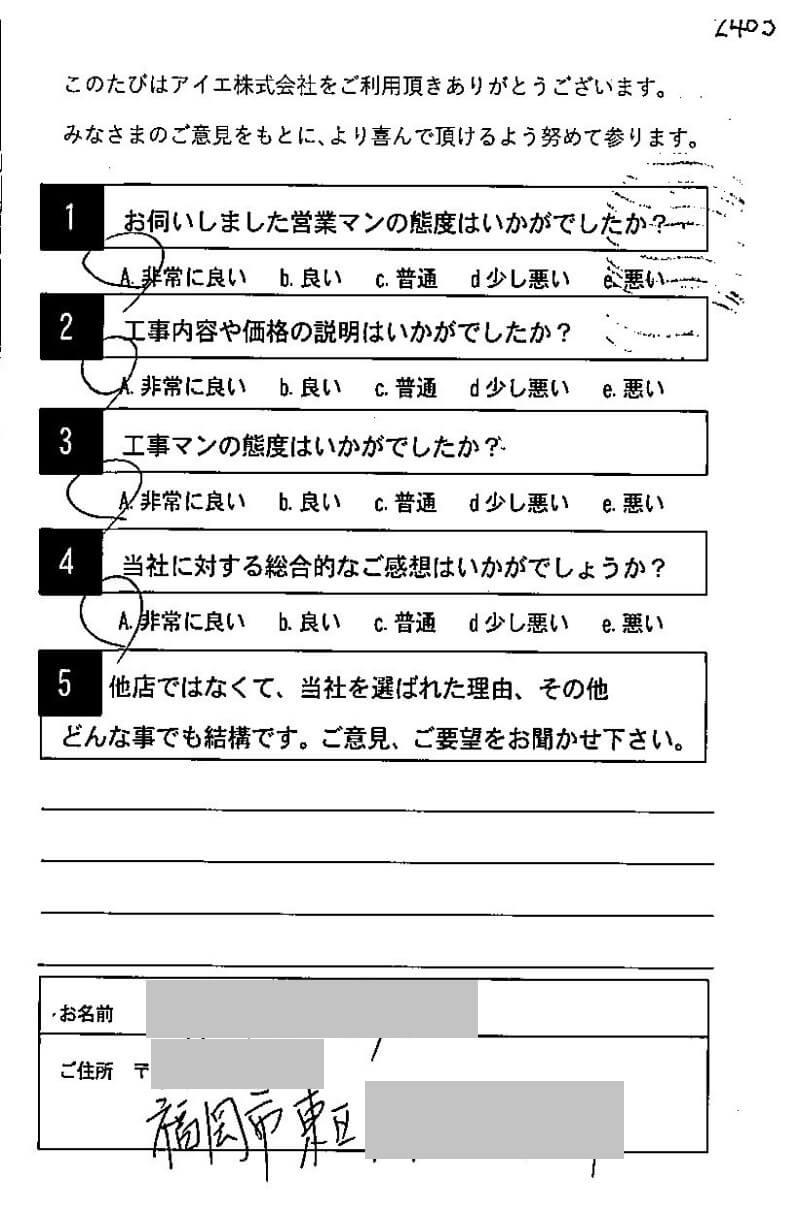 2405
このたびはアイエ株式会社をご利用頂きありがとうございます。
みなさまのご意見をもとに、より喜んで頂けるよう努めて参ります。
1 お伺いしました営業マンの態度はいかがでしたか?
A. 非常に良い b. 良い c. 普通 d 少し悪い e. 悪い
2 工事内容や価格の説明はいかがでしたか?
A. 非常に良い b. 良い c. 普通 d 少し悪い e. 悪い
3 工事マンの態度はいかがでしたか?
A. 非常に良い b. 良い c. 普通 d 少し悪い e. 悪い
4 当社に対する総合的なご感想はいかがでしょうか?
A. 非常に良い b. 良い c. 普通 d 少し悪い e. 悪い
5 他店ではなくて、当社を選ばれた理由、その他
どんな事でも結構です。ご意見、ご要望をお聞かせ下さい。
お名前
ご住所 〒
福岡市東区